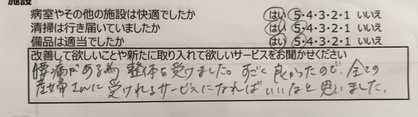 施設
病室やその他の施設は快適でしたか はい 5・4・3・2・1 いいえ
清掃は行き届いていましたか はい 5・4・3・2・1 いいえ
備品は適当でしたか はい 5・4・3・2・1 いいえ
改善して欲しいことや新たに取り入れて欲しいサービスをお聞かせください
腰痛がある為 整体も受けました。すごく良かったので、全ての
産婦さんに受けれるサービスになればいいなと思いました。